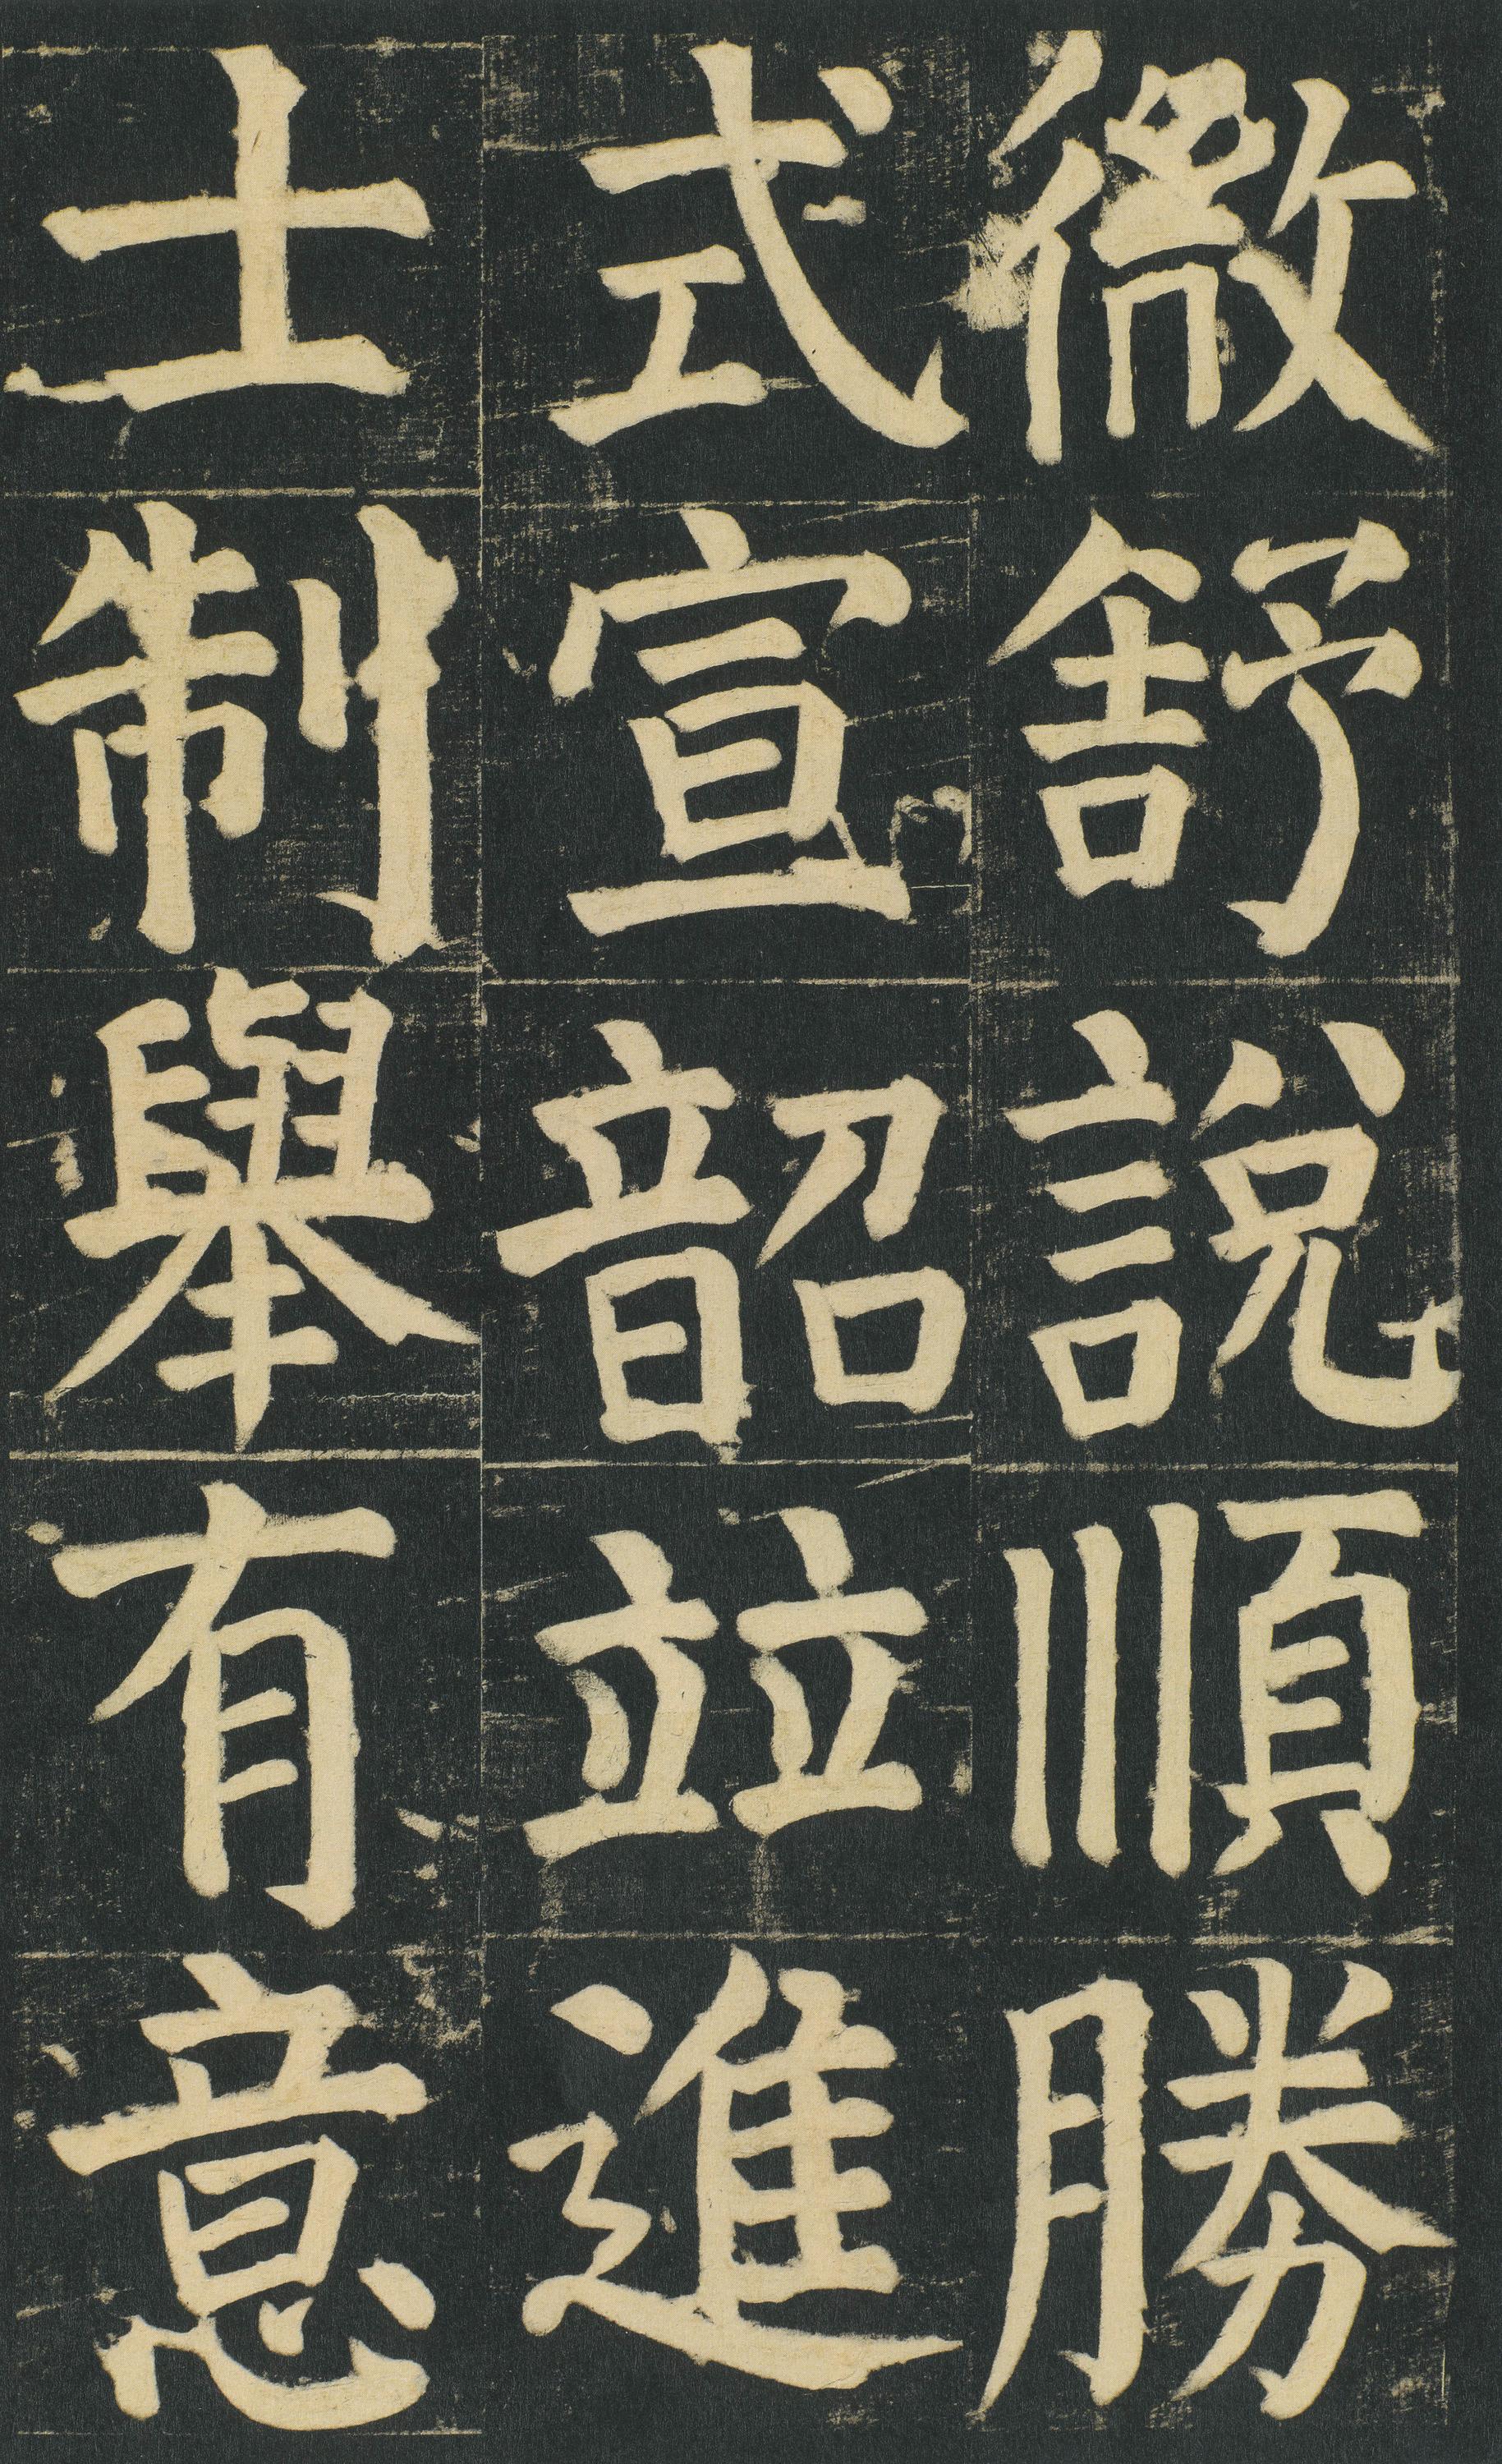 微舒說順勝
式宣韶並進
士制舉有意